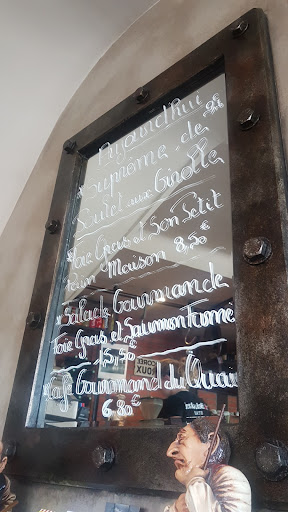 Aujourd'hui
* Suprême de
Poulet aux Girolles
* Foie Gras et Son Petit
Pain Maison 8,50€
* Salade Gourmande
Foie Gras et Saumon Fumé
15,50€
* Café Gourmand du Quai
6.80€